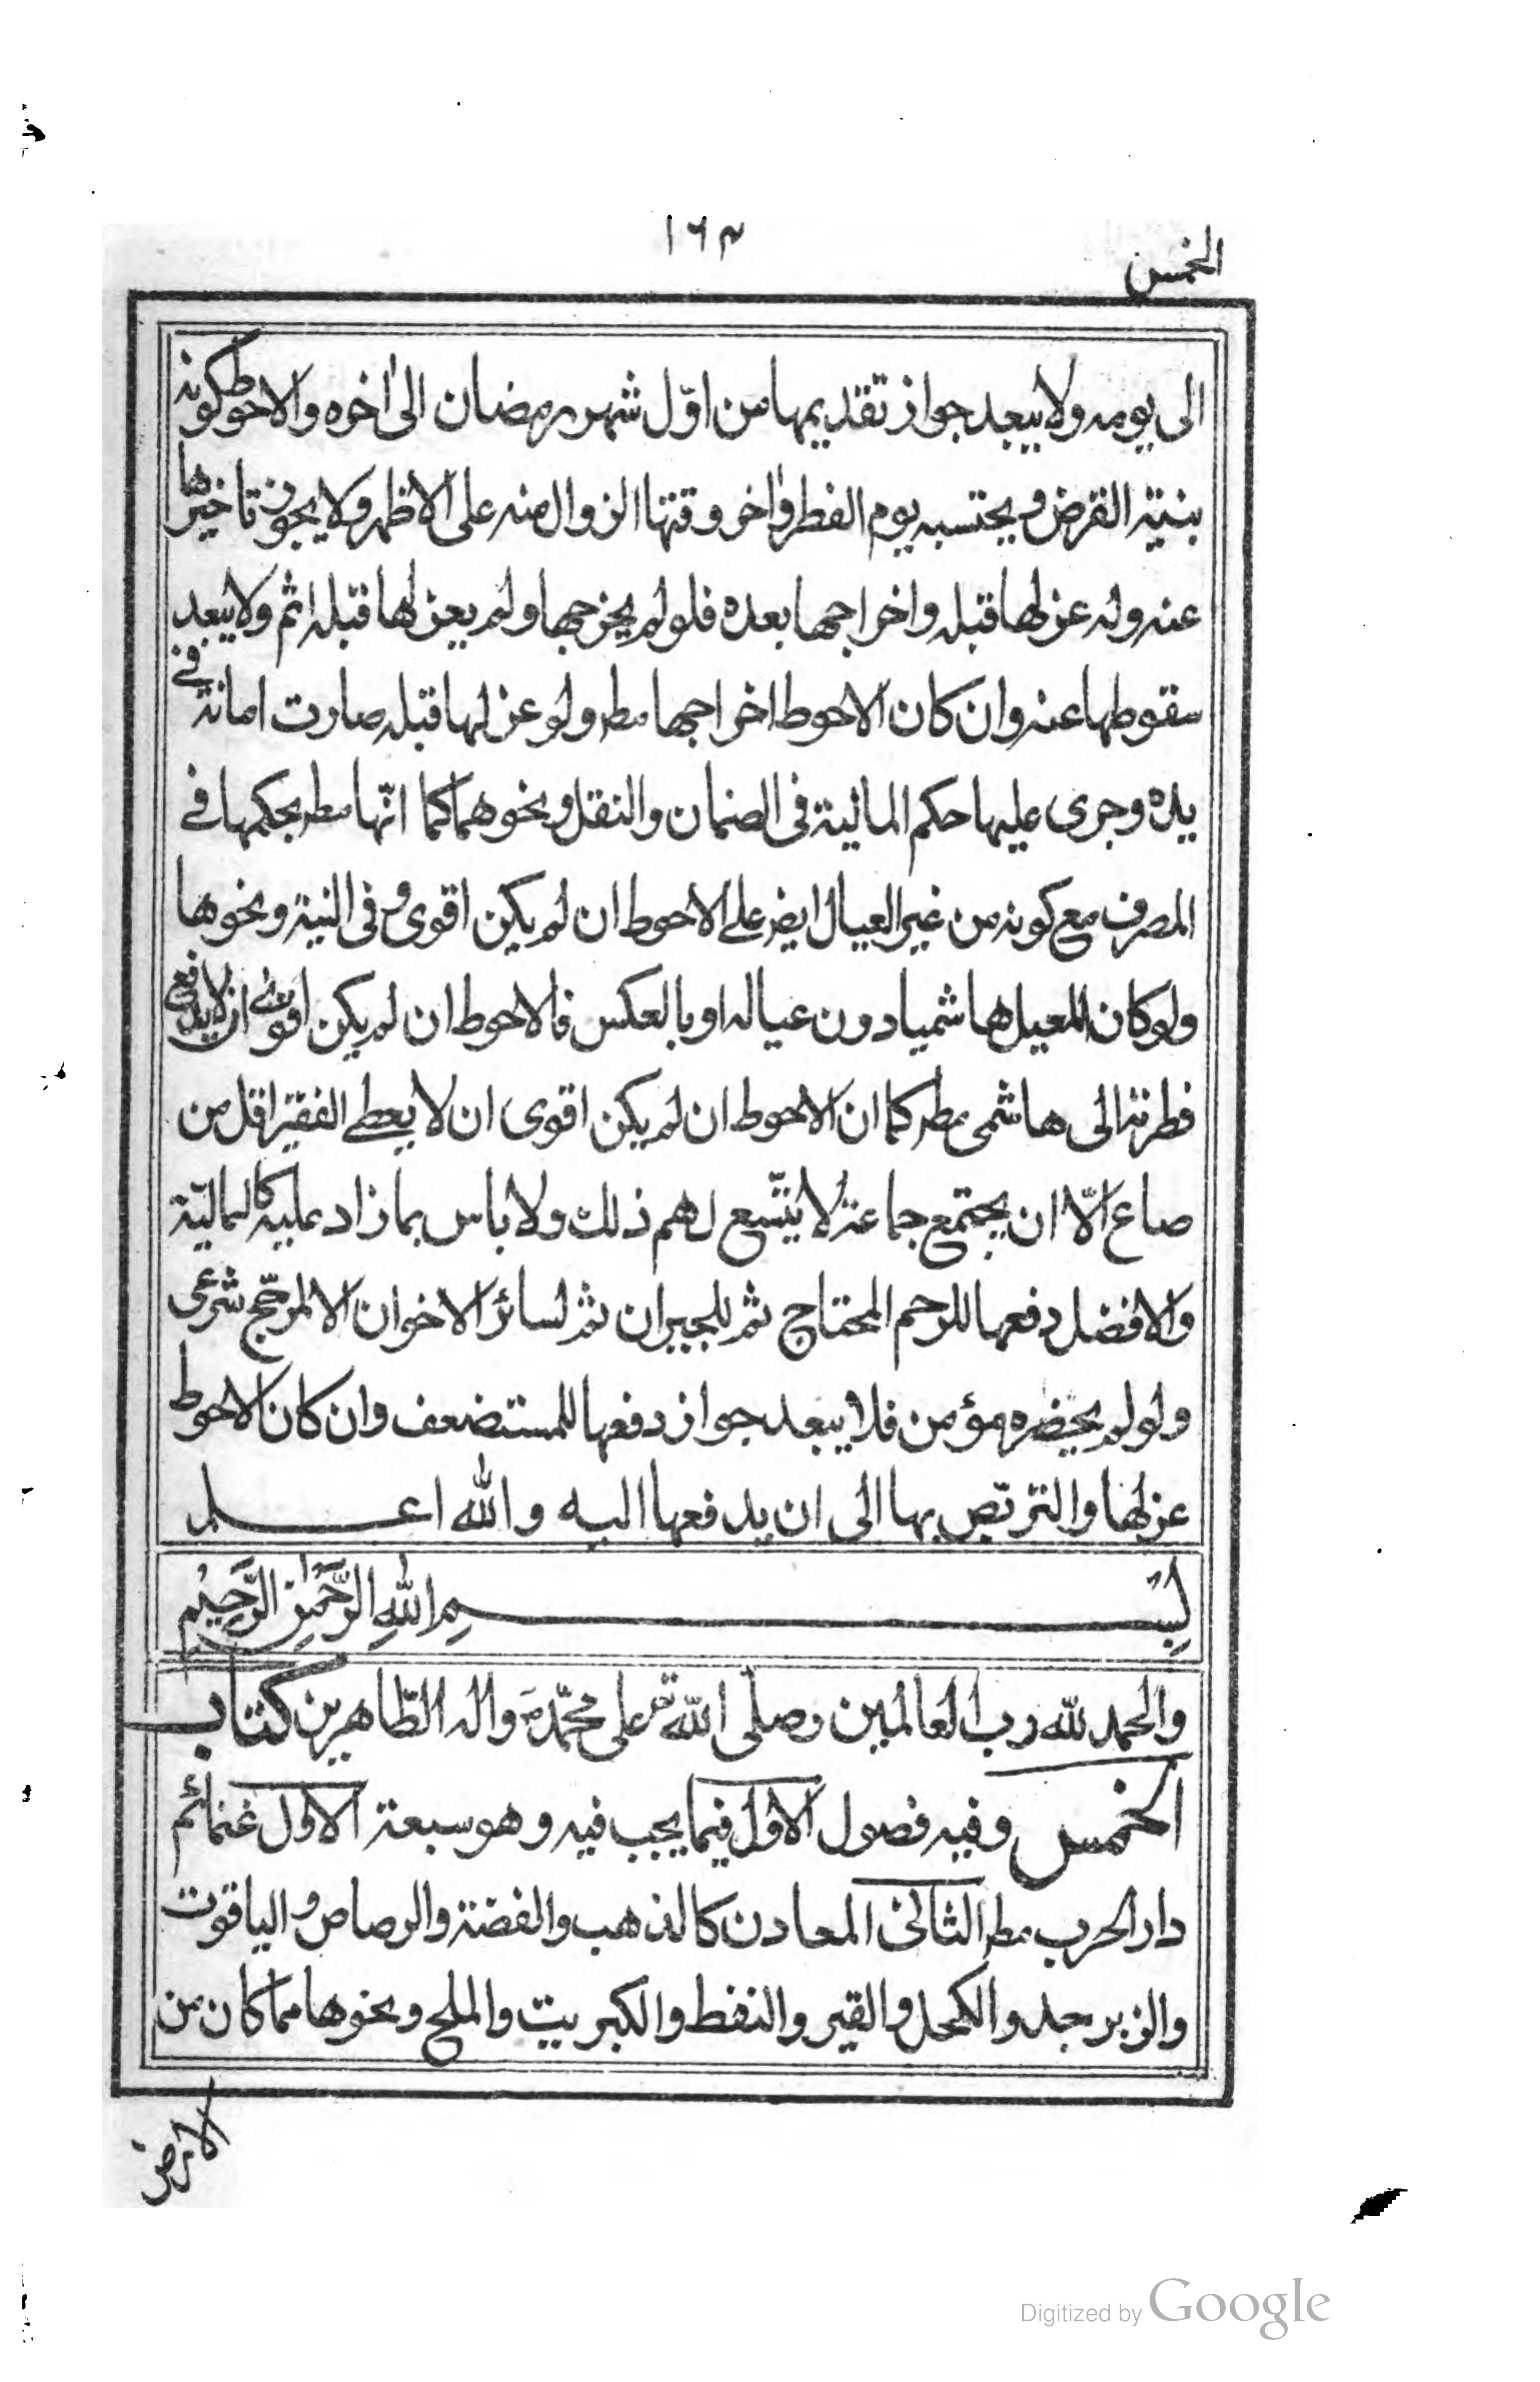 ١٦٣
الخمس
الى يومه ولا يبعد جواز تقديمها من اوّل شهر رمضان الى اخره والاحوط كونه
بنيّة القرض ويحتسبه يوم الفطر واخر وقتها الزوال منه على الاظهر ولا يجوز تاخيرها
عنه وله عزلها قبله واخراجها بعده فلو لم يخرجها ولم يعزلها قبله اثم ولا يبعد
سقوطها عنه وان كان الاحوط اخراجها مط ولو عزلها قبله صارت امانة في
يده وجرى عليها حكم المالية فى الضمان والنقل ونحوهما كما انّها مط بحكمها في
المصرف مع كونه من غير العيال ايض على الاحوط ان لم يكن اقوى وفى النية ونحوها
ولو كان المعيل هاشميا دون عياله او بالعكس فالاحوط ان لم يكن اقوى ان لا يدفع
فطرته الى هاشمى مط كما ان الاحوط ان لم يكن اقوى ان لا يعطي الفقير اقل من
صاع الّا ان يجتمع جماعة لا يتّسع لهم ذلك ولا باس بما زاد عليه كالماليّة
والافضل دفعها للرحم المحتاج ثم للجيران ثم لسائر الاخوان الا لمرجّح شرعى
ولو لم يحضره مؤمن فلا يبعد جواز دفعها للمستضعف وان كان الاحوط
عزلها والتربّص بها الى ان يدفعها اليه والله اعلم
بِسْمِ اللهِ الرَّحْمنِ الرَّحيمِ
والحمد لله رب العالمين وصلى الله على محمّد واله الطّاهرين كتاب
الخمس وفيه فصول الاوّل فيما يجب فيه وهو سبعة الاوّل غنائم
دار الحرب مط الثانى المعادن كالذهب والفضّة والرصاص والياقوت
والزبرجد والكحل والقير والنفط والكبريت والملح ونحوها مما كان من
الارض
Digitized by Google